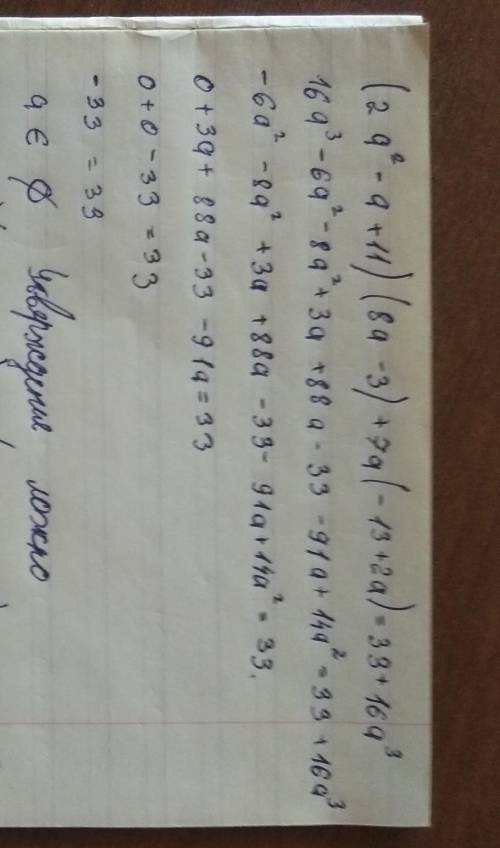 (2a² - a + 11)(8a - 3) + 7a(-13 + 2a) = 33 + 16a³
16a³ - 6a² - 8a² + 3a + 88a - 33 - 91a + 14a² = 33 + 16a³
-6a² - 8a² + 3a + 88a - 33 - 91a + 14a² = 33
0 + 3a + 88a - 33 - 91a = 33
0 + 0 - 33 = 33
-33 = 33
a ∈ ∅ Утверждение ложно